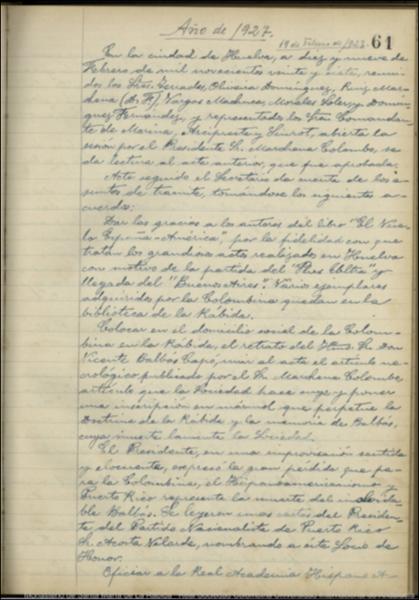 Año de 1927.
19 de Febrero de 1927. 61
En la ciudad de Huelva, a diez y nueve de
Febrero de mil novecientos veinte y siete, reuni-
dos los Sres. Terrades, Oliveira Domínguez, Ruiz Mar-
chena (D. F), Vargas Machuca, Morales, Domin-
guez Fernández, y representados los Sres. Comandan-
te de Marina, Arcipreste y Siurot, abierta la
sesión por el Presidente Sr. Marchena Colombo, se
da lectura al acta anterior, que fue aprobada.
Acto seguido el Secretario da cuenta de los a-
suntos de tramite, tomándose los siguientes a-
cuerdos:
Dar las gracias a los autores del libro "El Vue-
lo España-América, por la fidelidad con que
tratan los grandiosos actos realizados en Huelva
con motivo de la partida del "Plus Ultra" y
llegada del "Buenos Aires". Varios ejemplares
adquiridos por la Colombina quedan en la
biblioteca de la Rábida.
Colocar en el domicilio social de la Colom-
bina en la Rábida, el retrato del Ilmo. Sr. Don
Vicente Balbás Capó, unir al acta el articulo ne-
crológico publicado por el Sr. Marchena Colombo,
articulo que la Sociedad hace suyo y poner
una inscripción en mármol que perpetue la
Doctrina de la Rábida y la memoria de Balbás,
cuya muerte lamenta la Sociedad.
El Presidente, en una improvisación sentida
y elocuente, expresó la gran pérdida que pa-
ra la Colombina, el Hispanoamericanismo y
Puerto Rico representa la muerte del inolvida-
ble Balbás. Se leyeron unas cartas del Presiden-
te del Partido Nacionalista de Puerto Rico
Sr. Acosta Velarde, nombrando a éste Socio de
Honor.
Oficiar a la Real Academia Hispano A-